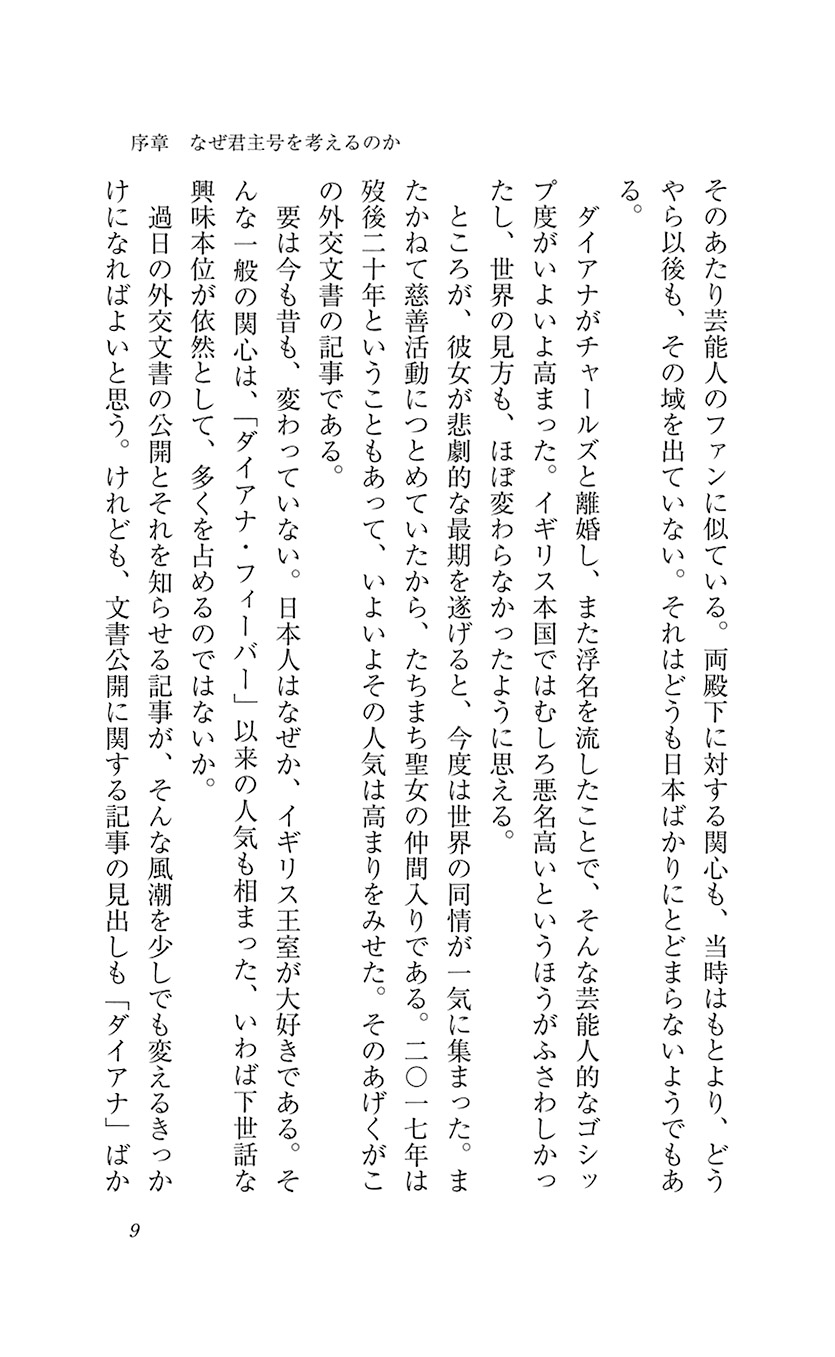 序章　なぜ君主号を考えるのか
そのあたり芸能人のファンに似ている。両殿下に対する関心も、当時はもとより、どう
やら以後も、その域を出ていない。それはどうも日本ばかりにとどまらないようでもあ
る。
ダイアナがチャールズと離婚し、また浮名を流したことで、そんな芸能人的なゴシッ
プ度がいよいよ高まった。イギリス本国ではむしろ悪名高いというほうがふさわしかっ
たし、世界の見方も、ほぼ変わらなかったように思える。
ところが、彼女が悲劇的な最期を遂げると、今度は世界の同情が一気に集まった。ま
たかねて慈善活動につとめていたから、たちまち聖女の仲間入りである。二〇一七年は
歿後二十年ということもあって、いよいよその人気は高まりをみせた。そのあげくがこ
の外交文書の記事である。
要は今も昔も、変わっていない。日本人はなぜか、イギリス王室が大好きである。そ
んな一般の関心は、「ダイアナ・フィーバー」以来の人気も相まった、いわば下世話な
興味本位が依然として、多くを占めるのではないか。
過日の外交文書の公開とそれを知らせる記事が、そんな風潮を少しでも変えるきっか
けになればよいと思う。けれども、文書公開に関する記事の見出しも「ダイアナ」ばか
9